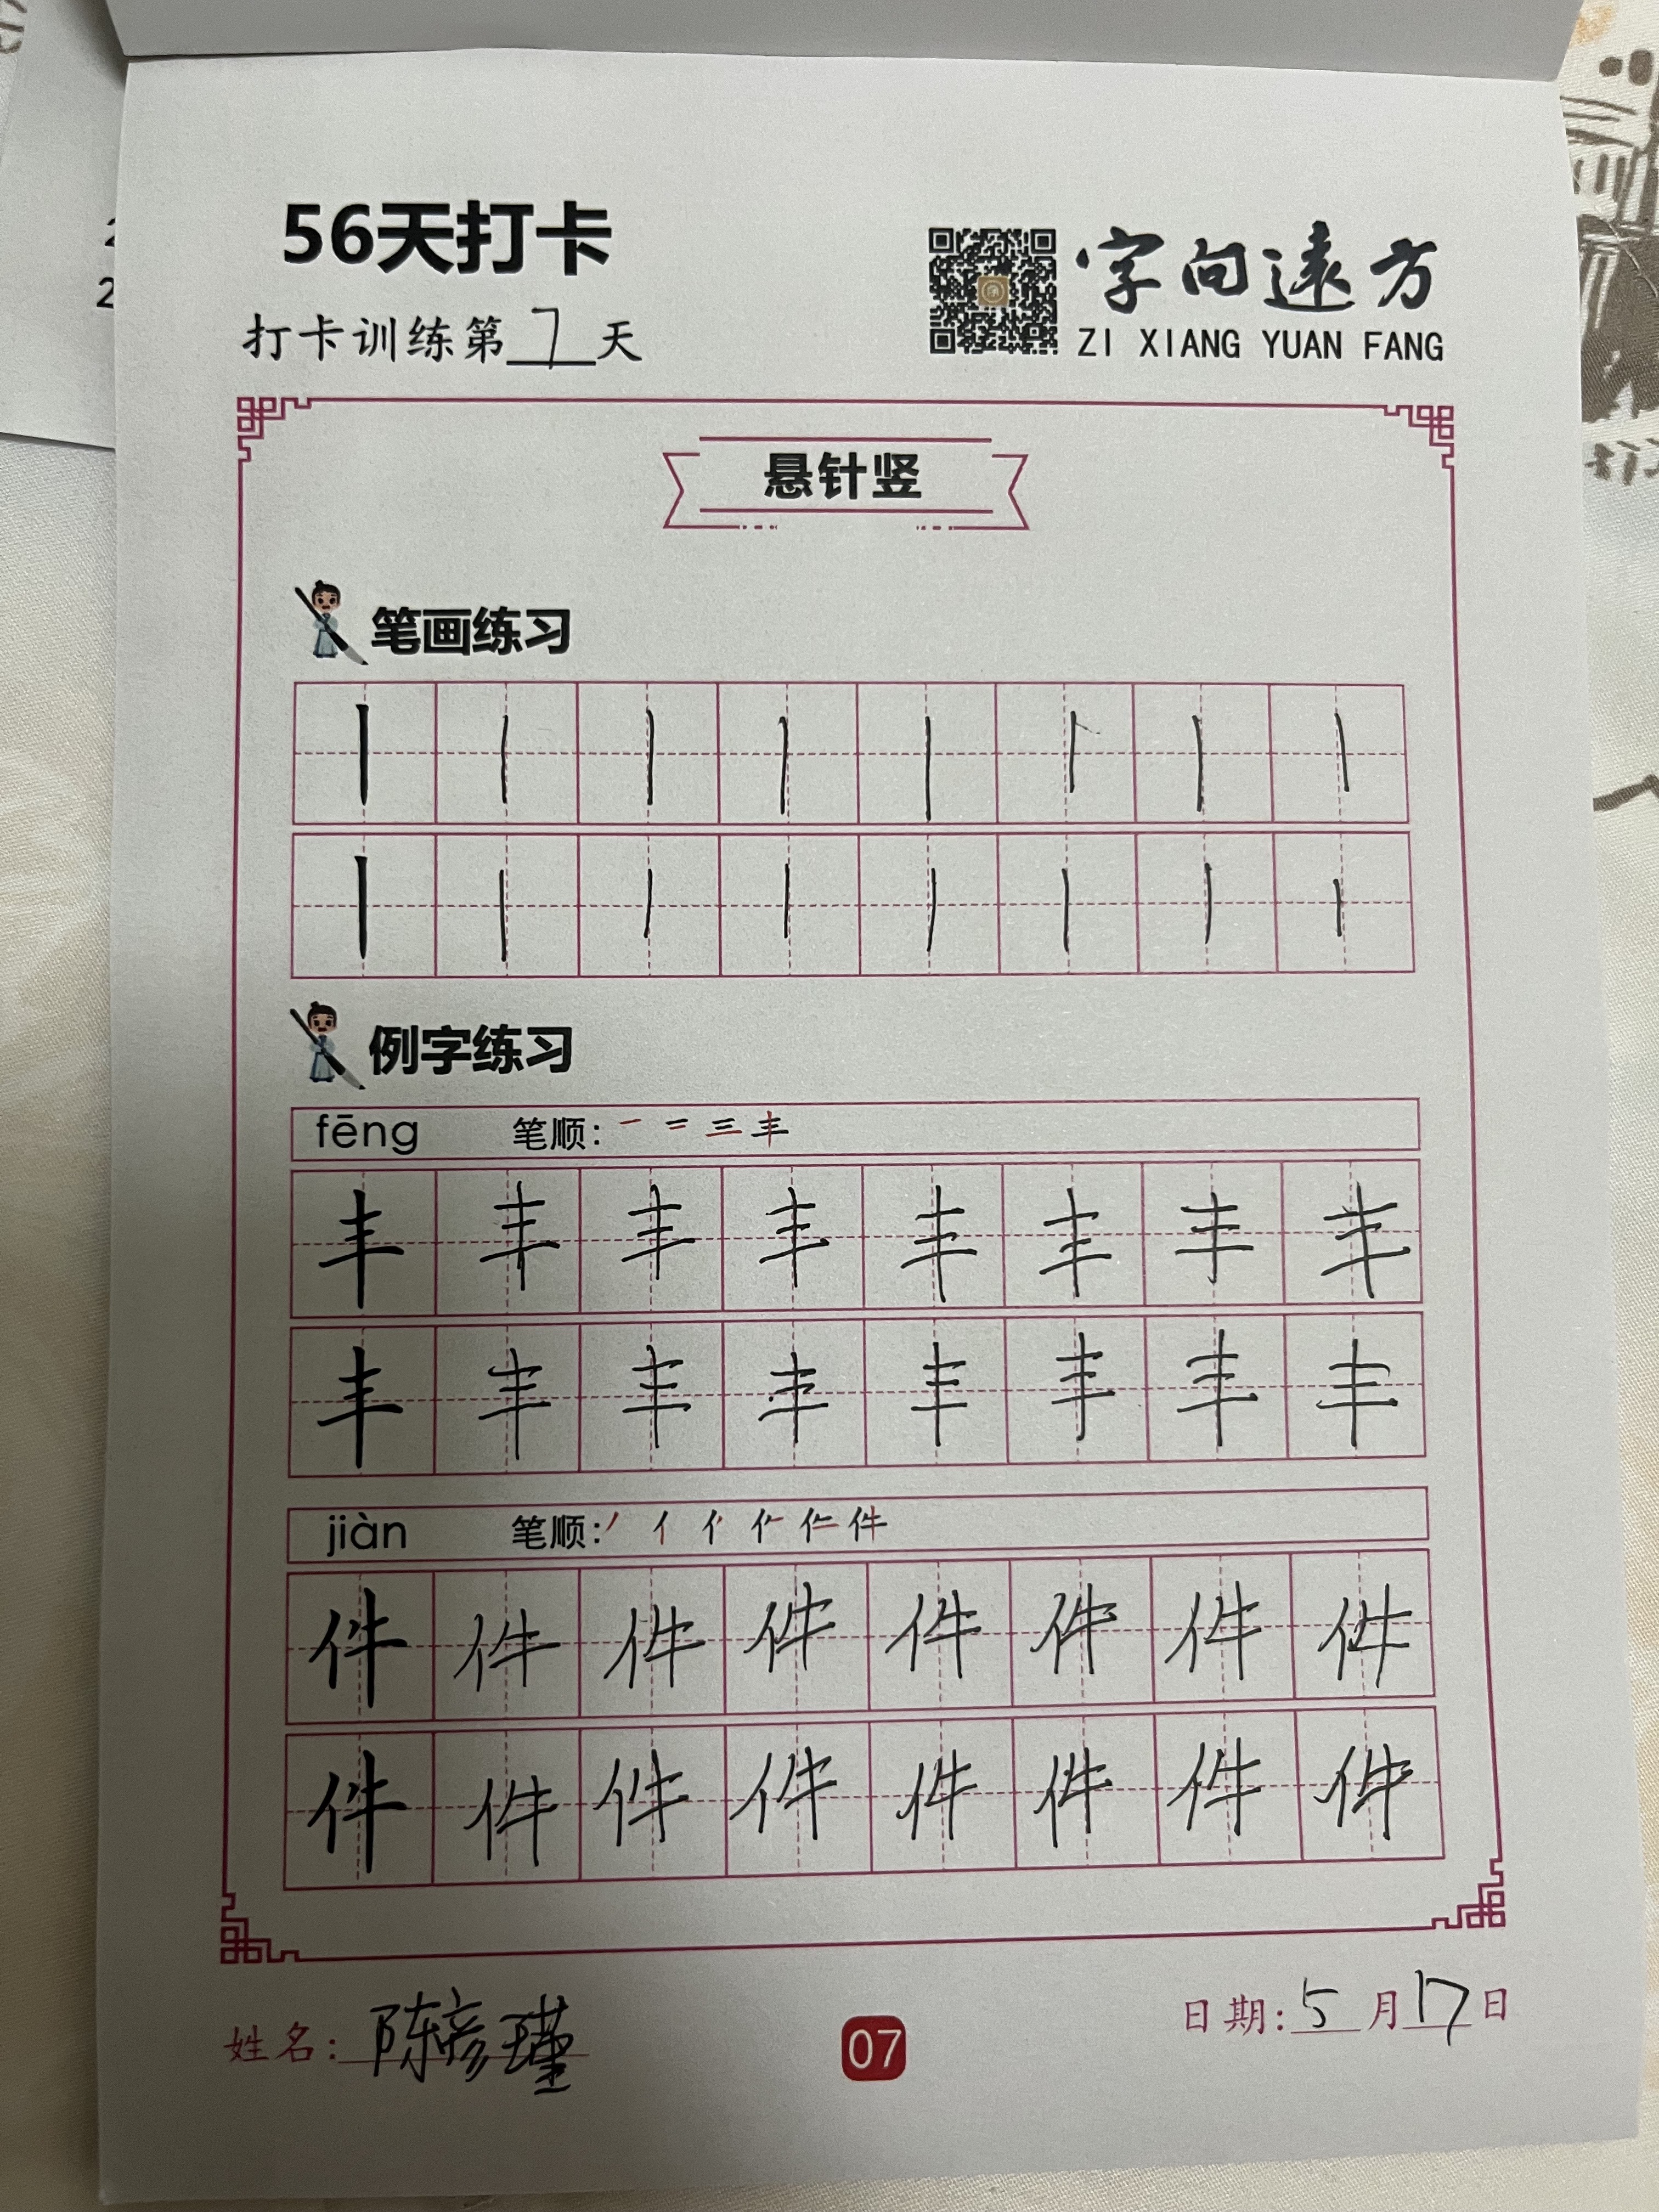 56天打卡
打卡训练第7天
字向遠方
ZI XIANG YUAN FANG
悬针竖
笔画练习
丨丨丨丨丨丨丨丨
丨丨丨丨丨丨丨丨
例字练习
fēng 笔顺: 一 二 三 丰
丰丰丰丰丰丰丰丰
丰丰丰丰丰丰丰丰
jiàn 笔顺: 丿 亻 件
件件件件件件件件
件件件件件件件件
姓名: 陈彦瑾
07
日期: 5月17日